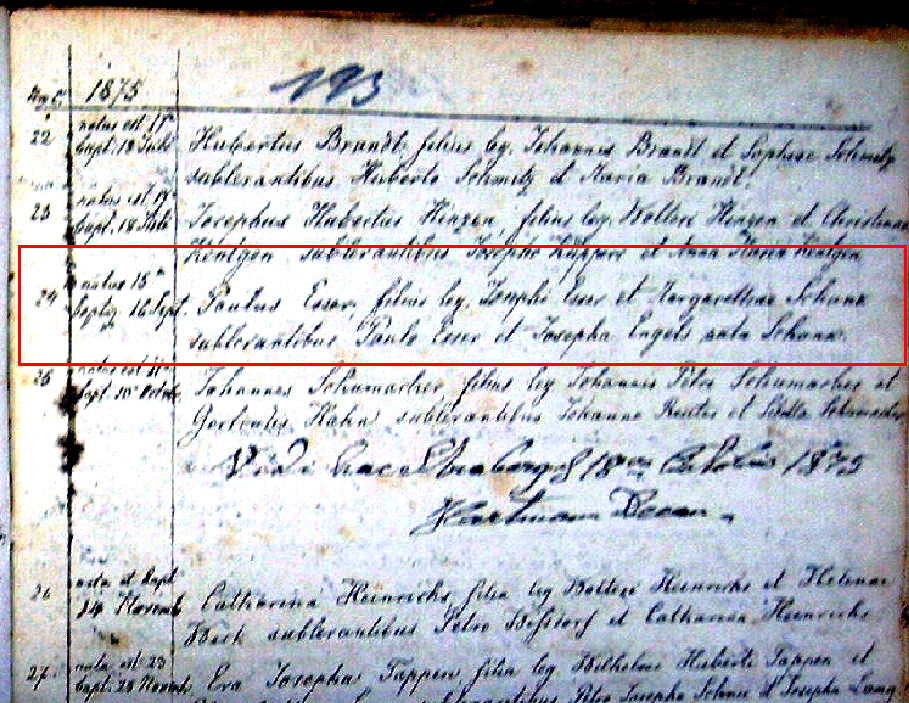 1875 193
22 natus est 17
bapt. 18 Julii Hubertus Brandt, filius leg. Johannis Brandt et Sophiae Schmitz
sublevantibus Huberto Schmitz et Maria Brandt.
23 natus est 17
bapt. 18 Julii Josephus Hubertus Hinzen, filius leg. Wolteri Hinzen et Christinae
Kentgen sublevantibus Josepho Küpper et Anna Maria Kentgen
24 natus 15
16 Sept. Paulus Esser, filius leg. Josephi Esser et Margarethae Schunx
sublevantibus Paulo Esser et Josepha Engels nata Schunx.
25 natus est
bapt. 10 Octob. Johannes Schumacher, filius leg Johannis Petri Schumacher et
Gertrudis Hahn sublevantibus Johanne Reuter et
Vidi hac 18 1875
Hartmann Decan
26 nata et bapt
14 Novemb Catharina Heinrichs, filia leg Wolteri Heinrichs et Helenae
sublevantibus Petro et Catharina Heinrichs
27. nata est 23
bapt. 28 Novemb Eva Josepha Tappen, filia leg Wilhelmi Huberti Tappen et
sublevantibus Petro Josepho et Josepha